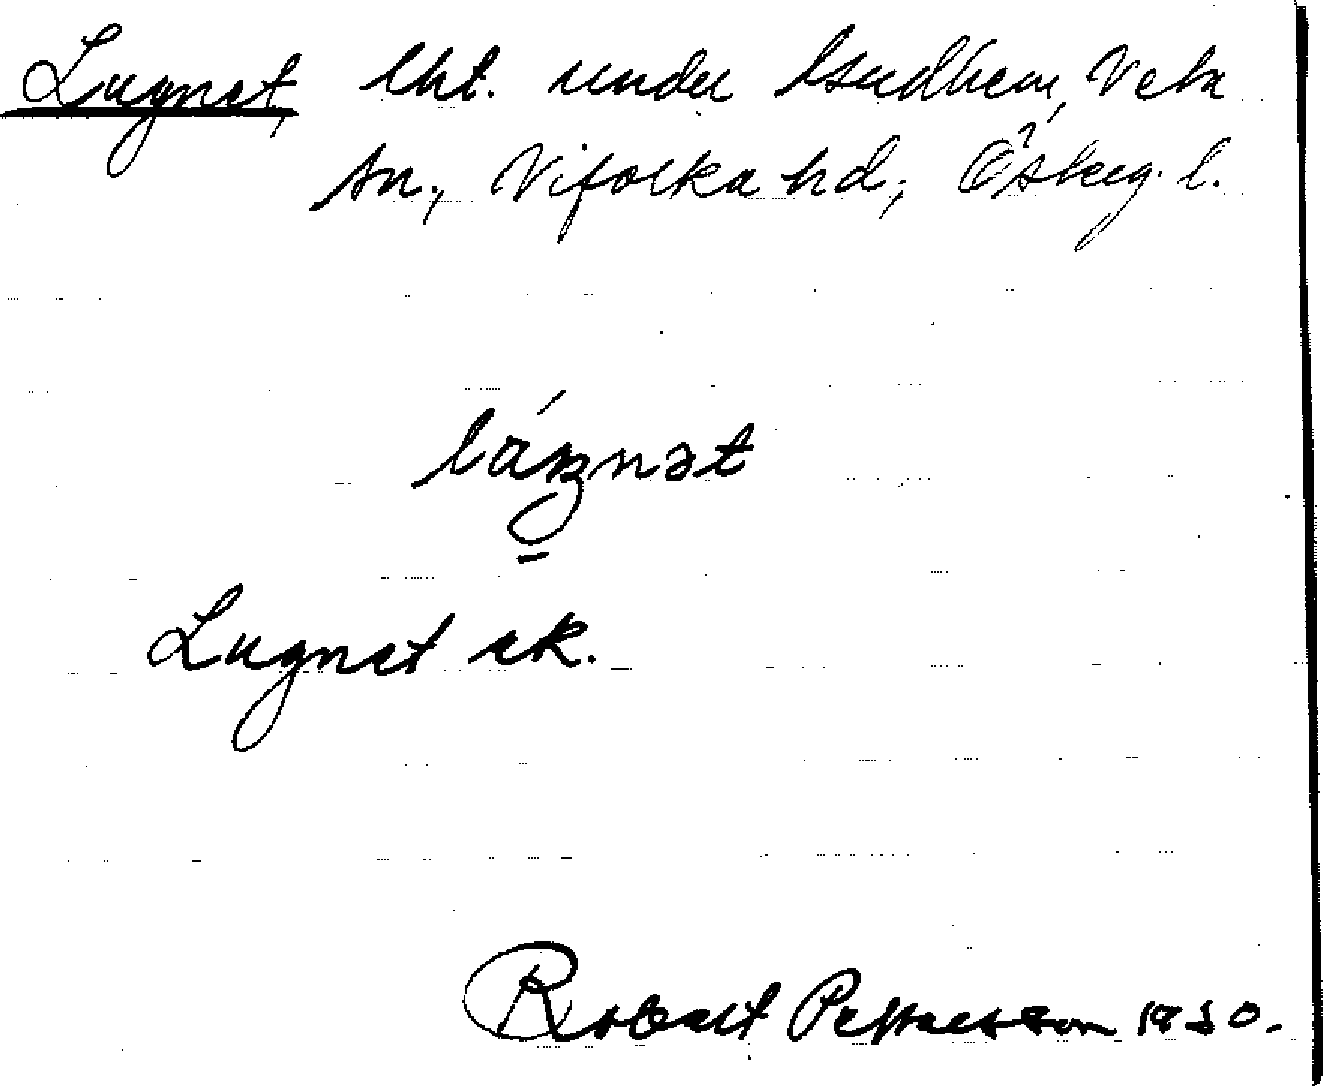 Lugnet, lht. under Sundhem, Veta
sn., Vifolka hd, Österg. l.
Lugnet ek.
Robert Pettersson 1930.